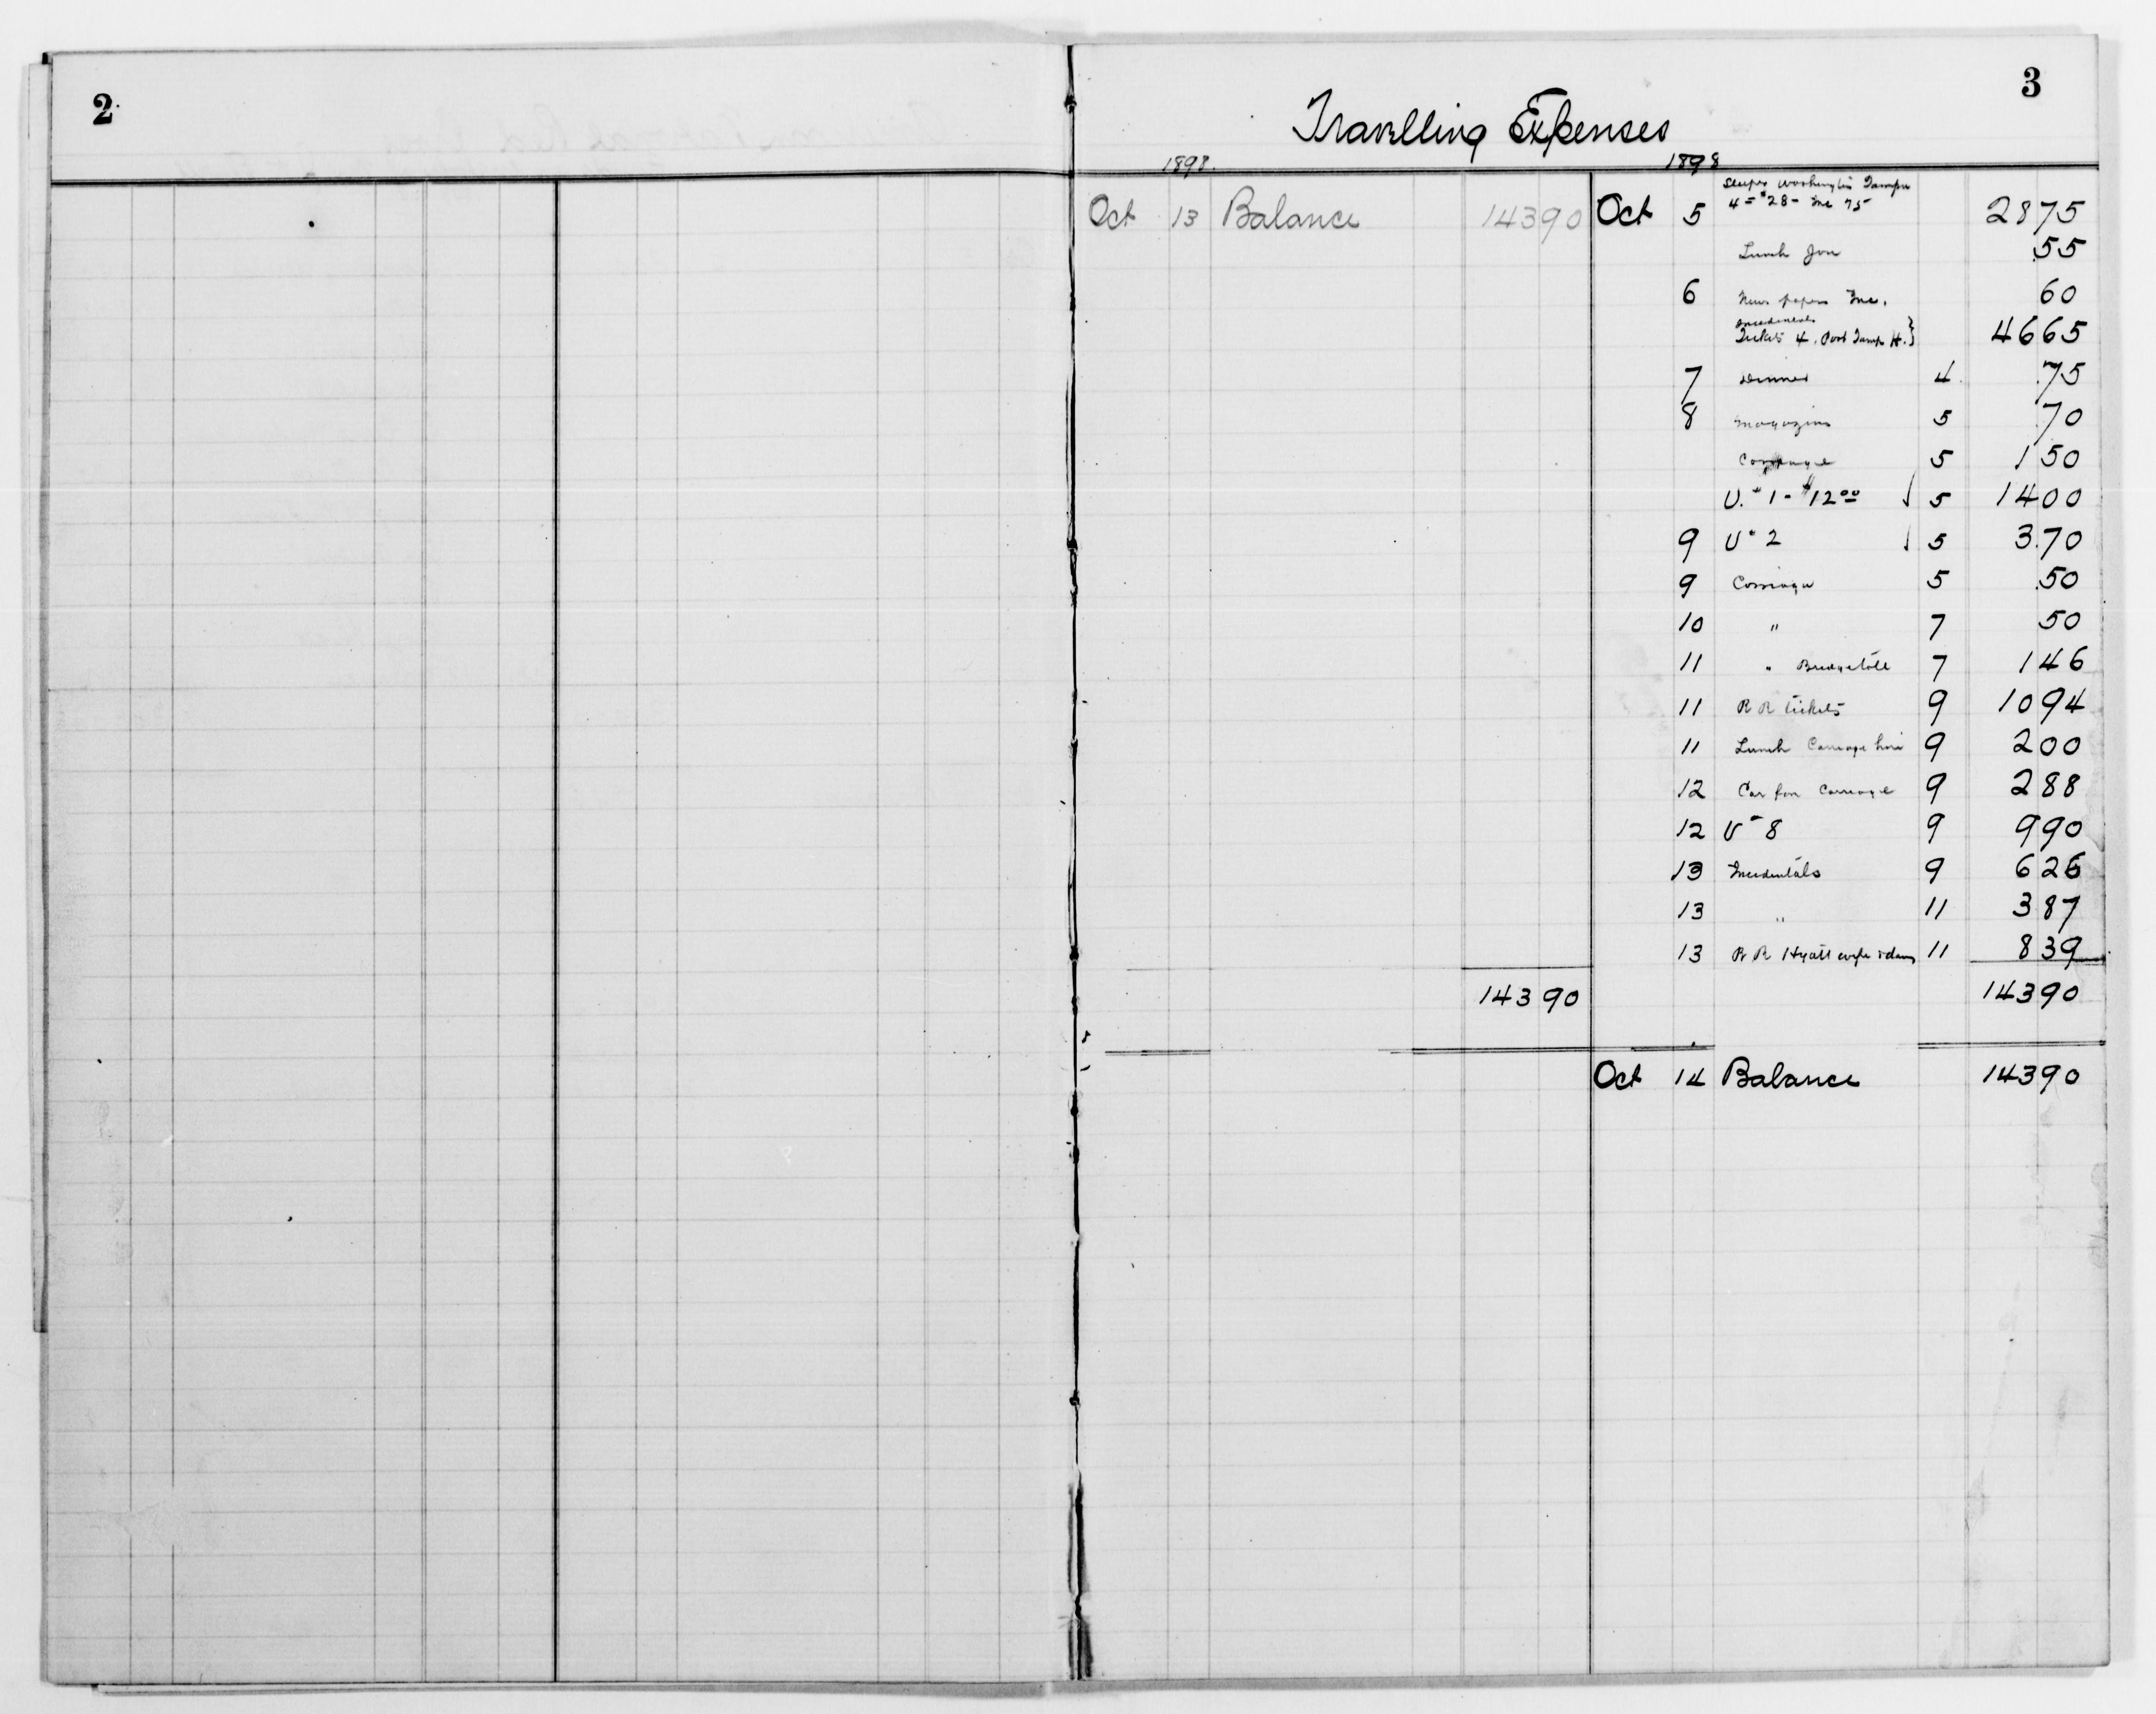 2
3
Travelling Expenses
1898. 1898
Sleeper Washington Tampa
Oct 13 Balance 143 90 Oct 5 4 = $28 - Inc 75 28 75
Lunch Jou .55
6 News papers Inc. 60
Incidentals
Tickets 4. Port Tampa H. } 46 65
7 Dinner 4. .75
8 magazins 5 .70
Carriage 5 1 50
U. " 1 - $12 00 √ 5 14 00
9 U " 2 √ 5 3.70
9 Carriage 5 .50
10 " 7 50
11 " Bridgetoll 7 1 46
11 R R tickets 9 10 94
11 Lunch Carriage hire 9 2 00
12 Car fare Carriage 9 2 88
12 U " 8 9 9 90
13 Incidentals 9 6 26
13 " 11 3 87
13 R R Hyatt wife 11 8 39
143 90 143 90
Oct 14 Balance 143 90